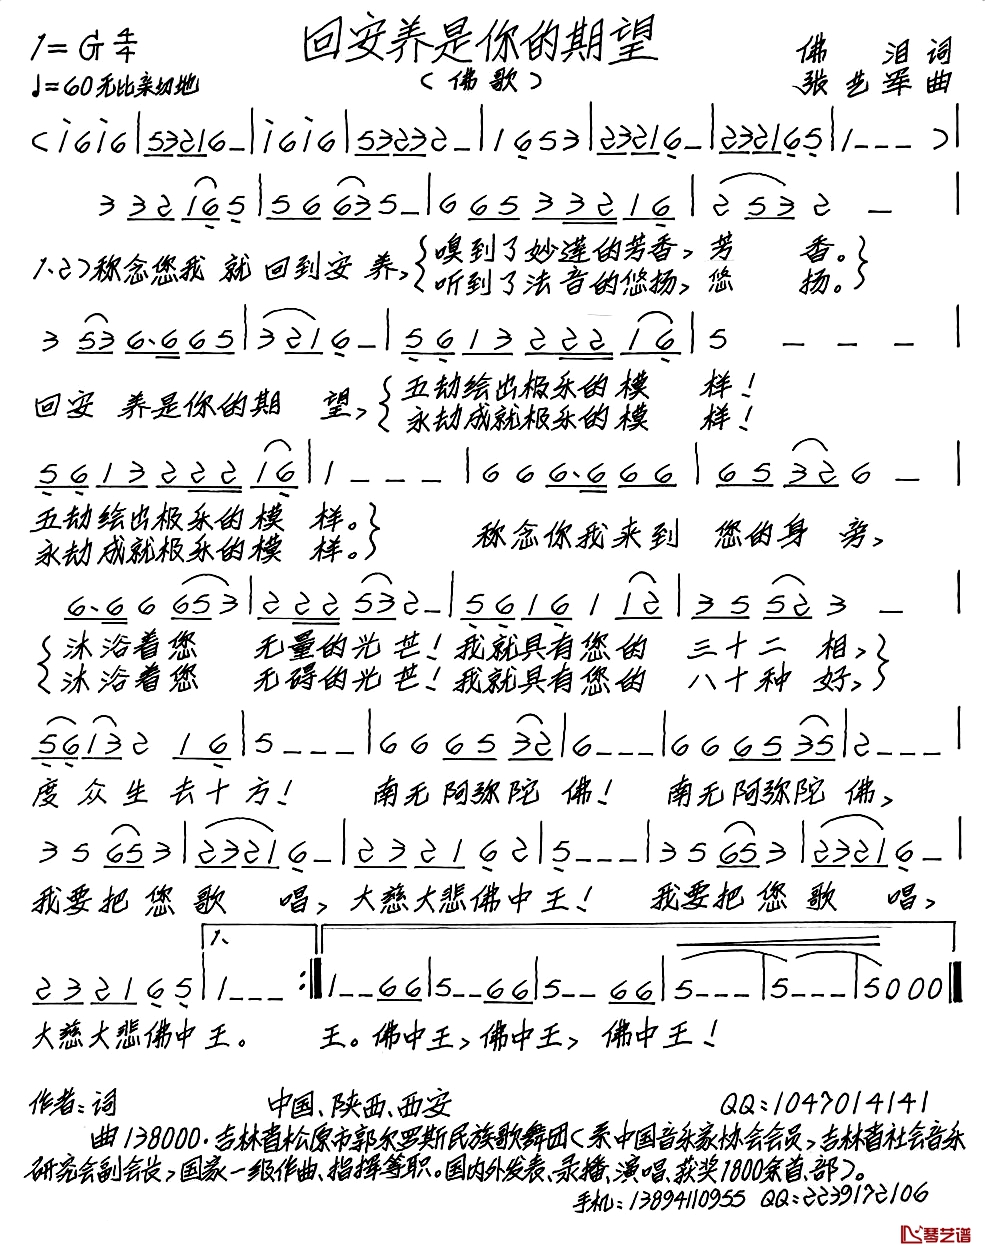 回安养是你的期望
1=G 4/4
(佛歌)
佛 泪 词
♩=60无比亲切地
张艺军 曲
(i6i6|53216_|i6i6|53232_|1653|23216_|232165|1___)|
3 332165|566635_|665333216|2532_|
1.2)称念您我就回到安养,{嗅到了妙莲的芳香,芳 香。}
{听到了法音的悠扬,悠 扬。}
3536.6665|3216_|5613222216|5___|
回安养是你的期 望,{五劫绘出极乐的模 样!
{永劫成就极乐的模 样!
5613222216|1___|666.6666|653326_|
五劫绘出极乐的模 样。}
永劫成就极乐的模 样。}
称念你我来到 您的身 旁,
6.666653|2222532_|5616112|355523_|
{沐浴着您 无量的光芒!我就具有您的 三十二 相,}
{沐浴着您 无碍的光芒!我就具有您的 八十种 好,}
5613216|5___|666532|6___|666535|2___|
度众生去十方! 南无阿弥陀 佛! 南无阿弥陀 佛,
35653|23216_|232162|5___|35653|23216_|
我要把您歌 唱,大慈大悲佛中王! 我要把您歌 唱,
1、
232165|1___:‖1__66|5__66|5__66|5___|5___|5000‖
大慈大悲佛中王。 王。佛中王,佛中王, 佛中王!
作者:词 中国、陕西、西安 QQ:1047014141
曲138000·吉林省松原市郭尔罗斯民族歌舞团(系中国音乐家协会会员,吉林省社会音乐
研究会副会长,国家一级作曲、指挥等职。国内外发表、录播、演唱、获奖1800余首、部)。
手机:13894110955 QQ:2239172106
琴艺谱